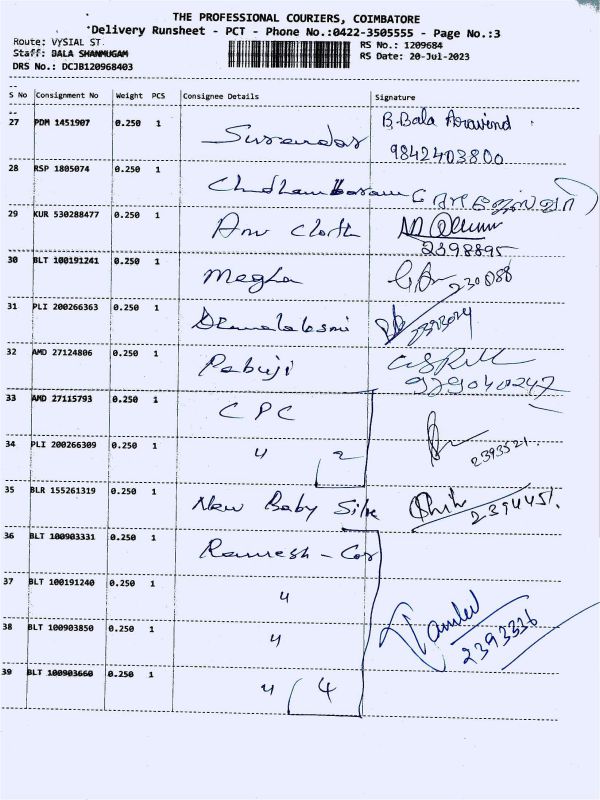 THE PROFESSIONAL COURIERS, COIMBATORE
Delivery Runsheet - PCT - Phone No.:0422-3505555 - Page No.:3
Route: VYSIAL ST. RS No.: 1209684
Staff: BALA SHANMUGAM RS Date: 20-Jul-2023
DRS No.: DCJB120968403
S No Consignment No Weight PCS Consignee Details Signature
27 PDM 1451907 0.250 1 Surendar B.Bala Aravind
9842403800
28 RSP 1805074 0.250 1
29 KUR 530288477 0.250 1 Anu Cloth
2398895
30 BLT 100191241 0.250 1 Megha 230088
31 PLI 200266363 0.250 1
32 AMD 27124806 0.250 1 Pabuji
9791040247
33 AMD 27115793 0.250 1 CPC
34 PLI 200266309 0.250 1 〃 2 2393521
35 BLR 155261319 0.250 1 New Baby Silk 2394451
36 BLT 100903331 0.250 1 Ramesh - Car
37 BLT 100191240 0.250 1 〃
38 BLT 100903850 0.250 1 〃 2393336
39 BLT 100903660 0.250 1 〃 4